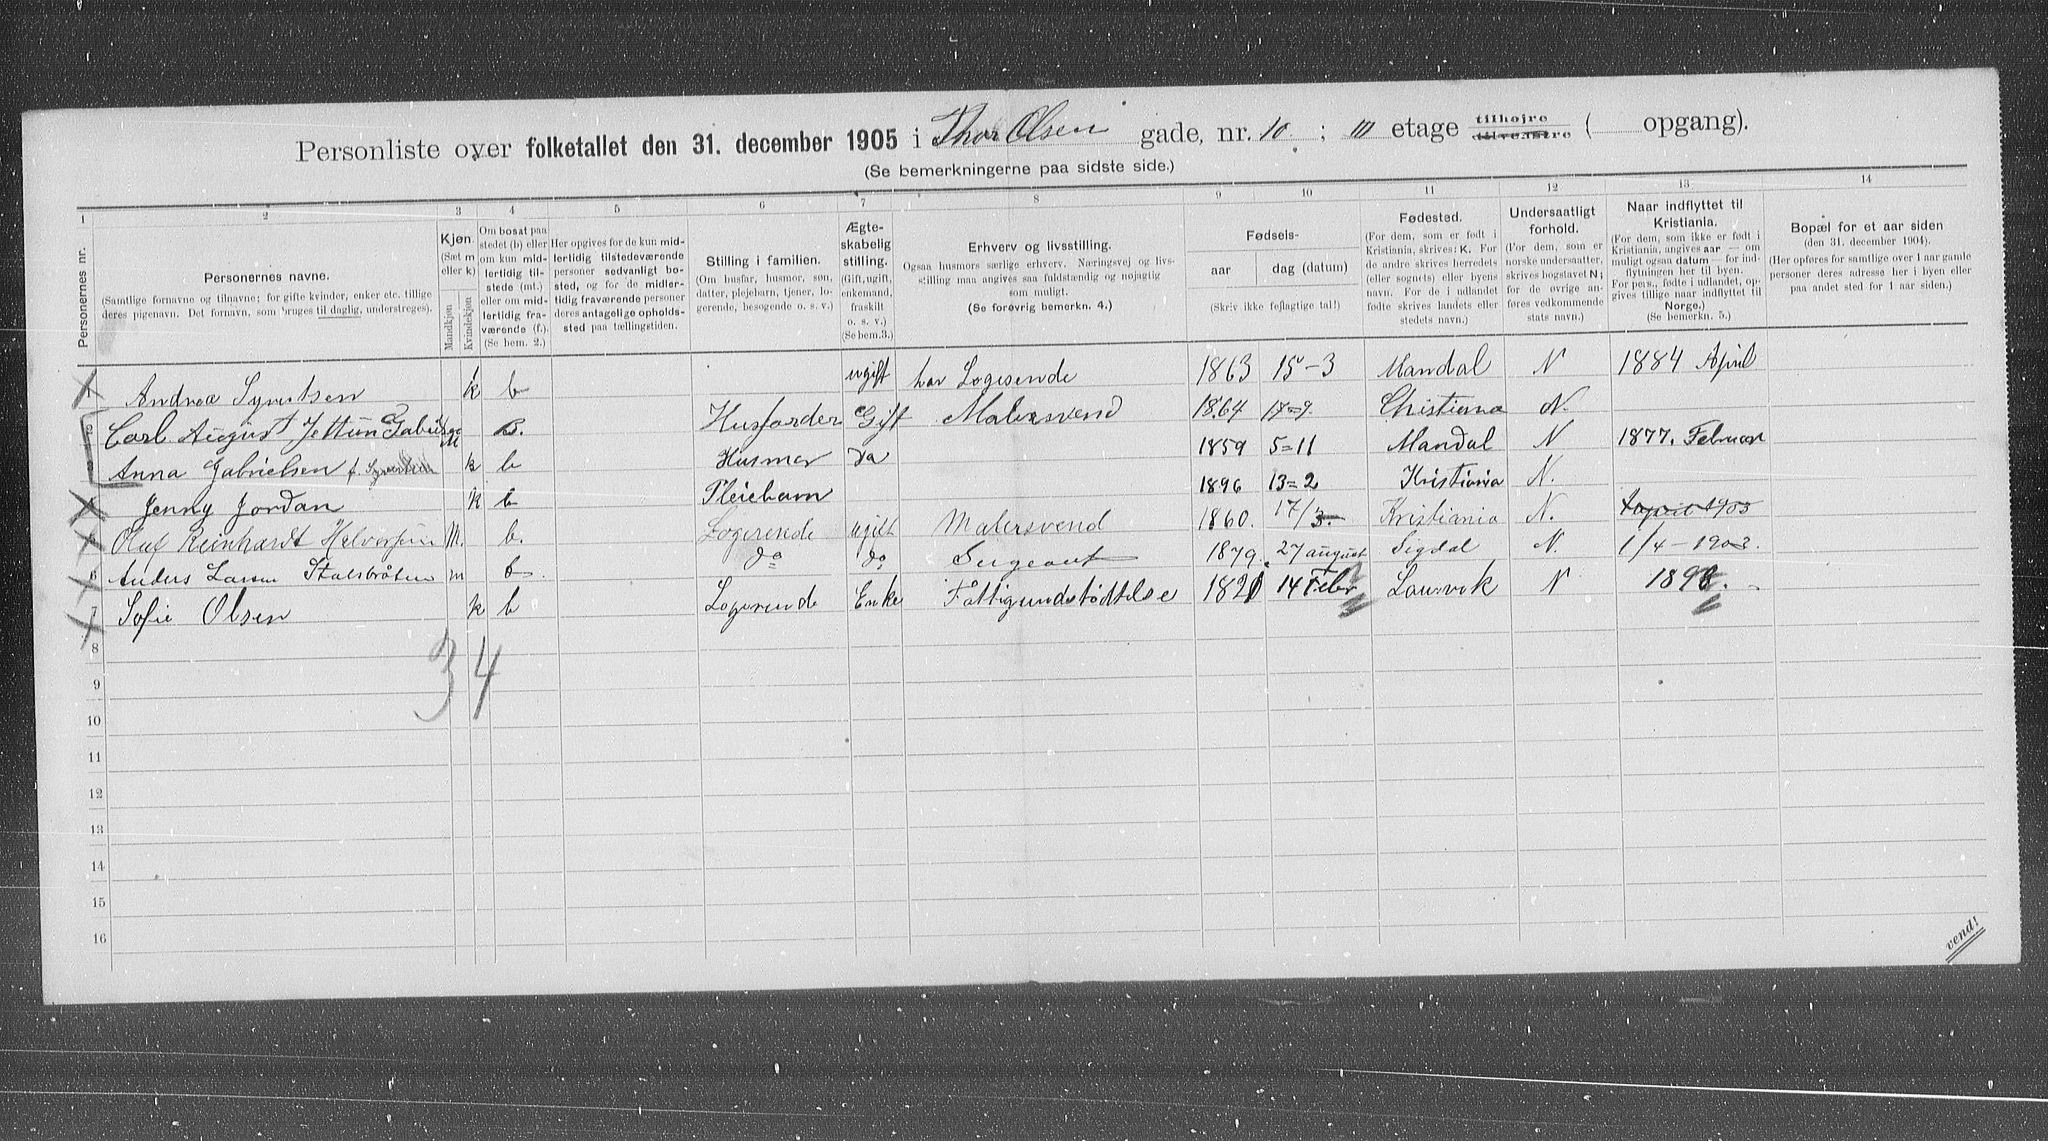 Personliste over folketallet den 31. december 1905 i Thor Olsen gade, nr. 10 ; III etage tilhøjre tilvenstre ( opgang).
(Se bemerkningerne paa sidste side.)
1 2 3 4 5 6 7 8 9 10 11 12 13 14
Personernes nr.
Personernes navne.
(Samtlige fornavne og tilnavne; for gifte kvinder, enker etc. tillige
deres pigenavn. Det fornavn, som bruges til daglig, understreges).
Kjøn.
(Sæt m
eller k)
Mandkjøn
Kvindekjøn
Om bosat paa
stedet (b) eller
om kun mid-
lertidig til-
stede (mt.)
eller om mid-
lertidig fra-
værende (f.).
(Se bem. 2.)
Her opgives for de kun mid-
lertidig tilstedeværende
personer sedvanligt bo-
sted, og for de midler-
tidig fraværende personer
deres antagelige opholds-
sted paa tællingstiden.
Stilling i familien.
(Om husfar, husmor, søn,
datter, plejebarn, tjener, lo-
gerende, besøgende o. s. v.)
Ægte-
skabelig
stilling.
(Gift, ugift,
enkemand,
fraskilt
o. s. v.)
(Se bem.3.)
Erhverv og livsstilling.
Ogsaa husmors særlige erhverv. Næringsvej og livs-
stilling maa angives saa fuldstændig og nøjagtig
som muligt.
(Se forøvrig bemerkn. 4.)
Fødsels-
aar dag (datum)
(Skriv ikke fejlagtige tal!)
Fødested.
(For dem, som er født i
Kristiania, skrives: K. For
de andre skrives herredets
(eller sognets) eller byens
navn. For de i udlandet
fødte skrives landets eller
stedets navn.)
Undersaatligt
forhold.
(For dem, som er
norske undersaatter,
skrives bogstavet N;
for de øvrige an-
føres vedkommende
stats navn.)
Naar indflyttet til
Kristiania.
(For dem, som ikke er født i
Kristiania, angives aar — om
muligt ogsaa datum — for ind-
flytningen her til byen.
For pers., fødte i udlandet, op-
gives tillige naar indflyttet til
Norge.)
(Se bemerkn. 5.)
Bopæl for et aar siden
(den 31. december 1904).
(Her opføres for samtlige over 1 aar gamle
personer deres adresse her i byen eller
paa andet sted for 1 aar siden.)
Andrea Syvertsen k b ugift har Logerende 1863 15-3 Mandal N 1884 April
2 Carl August Jettun Gabrielsen M B. Husfarder Gift Malersvend 1864 17=9. Christiania N.
3 Anna Gabrielsen f. Syvertsen k b Husmor Do 1859 5=11 Mandal N 1877. Februar
4 Jenny Jordan k b Pleiebarn 1896 13=2 Kristiania N.
5 Oluf Reinhardt Halvorsen M. b. Logerende ugift Malersvend 1860. 17/3. Kristiania N.
6 Anders Larsen Stalsbråten m b. do do Sergeant 1879. 27 august Sigdal N. 1/4-1903.
7 Sofie Olsen k b Logerende Enke Fattigunderstødtelse 1821 14 Febr Laurvik N 1898.
8
34
9
10
11
12
13
14
15
16
vend!